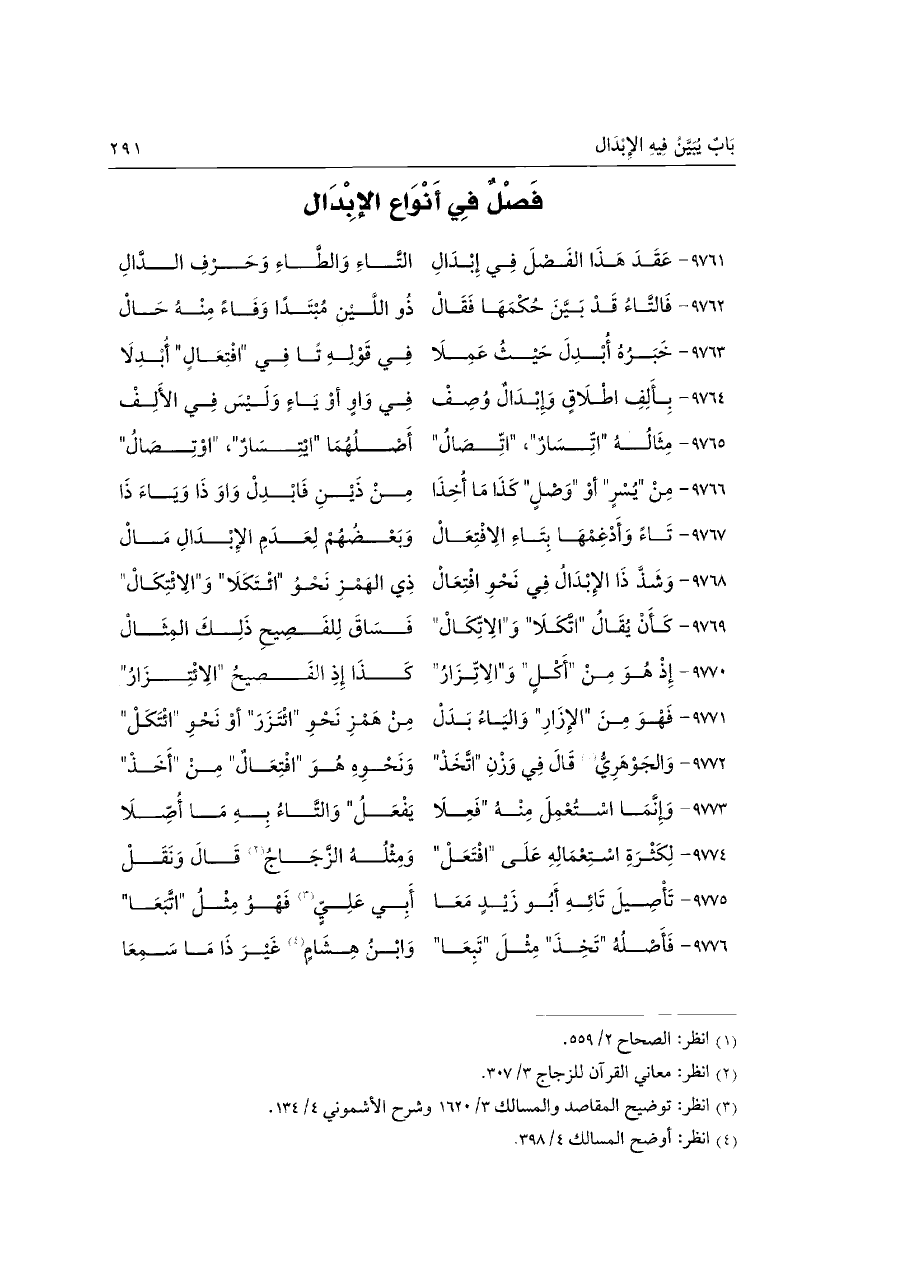 بَابٌ يُبَيَّنُ فِيهِ الإِبْدَال ٢٩١
فَصْلٌ فِي أَنْوَاعِ الإِبْدَالِ
٩٧٦١- عَقَدَ هَذَا الفَصْلَ فِي إِبْدَالِ التَّاءِ وَالطَّاءِ وَحَرْفِ الدَّالِ
٩٧٦٢- فَالتَّاءُ قَدْ بَيَّنَ حُكْمَهَا فَقَالْ ذُو اللَّيْنِ مُبْتَدًا وَفَاءً مِنْهُ حَالْ
٩٧٦٣- خَبَرُهُ أُبْدِلَ حَيْثُ عَمِلَا فِي قَوْلِهِ تَا فِي "افْتِعَالٍ" أُبْدِلَا
٩٧٦٤- بِأَلِفِ اطْلَاقٍ وَإِبْدَالٌ وُصِفْ فِي وَاوٍ أوْ يَاءٍ وَلَيْسَ فِي الأَلِفْ
٩٧٦٥- مِثَالُهُ "اتِّسَارٌ"، "اتِّصَالُ" أَصْلُهُمَا "ايْتِسَارٌ"، "اوْتِصَالُ"
٩٧٦٦- مِنْ "يُسْرٍ" أوْ "وَصْلٍ" كَذَا مَا أُخِذَا مِنْ ذَيْنِ فَابْدِلْ وَاوَ ذَا وَيَاءَ ذَا
٩٧٦٧- تَاءً وَأَدْغِمْهَا بِتَاءِ الِافْتِعَالْ وَبَعْضُهُمْ لِعَدَمِ الإِبْدَالِ مَالْ
٩٧٦٨- وَشَذَّ ذَا الإِبْدَالُ فِي نَحْوِ افْتِعَالْ ذِي الهَمْزِ نَحْوُ "ائْتَكَلَا" وَ"الِائْتِكَالْ"
٩٧٦٩- كَأَنْ يُقَالُ "اتَّكَلَا" وَ"الِاتِّكَالْ" فَسَاقَ لِلفَصِيحِ ذَلِكَ المِثَالْ
٩٧٧٠- إِذْ هُوَ مِنْ "أَكْلٍ" وَ"الِاتِّزَارُ" كَذَا إِذِ الفَصِيحُ "الِائْتِزَارُ"
٩٧٧١- فَهْوَ مِنَ "الإِزَارِ" وَاليَاءُ بَدَلْ مِنْ هَمْزِ نَحْوِ "ائْتَزَرَ" أوْ نَحْوِ "ائْتَكَلْ"
٩٧٧٢- وَالجَوْهَرِيُّ قَالَ فِي وَزْنِ "اتَّخَذْ" وَنَحْوِهِ هُوَ "افْتِعَالٌ" مِنْ "أَخَذْ"
٩٧٧٣- وَإِنَّمَا اسْتُعْمِلَ مِنْهُ "فَعِلَا يَفْعَلُ" وَالتَّاءُ بِهِ مَا أُصِّلَا
٩٧٧٤- لِكَثْرَةِ اسْتِعْمَالِهِ عَلَى "افْتَعَلْ" وَمِثْلُهُ الزَّجَاجُ(٢) قَالَ وَنَقَلْ
٩٧٧٥- تَأْصِيلَ تَائِهِ أَبُو زَيْدٍ مَعَا أَبِي عَلِيٍّ(٣) فَهْوُ مِثْلُ "اتَّبَعَا"
٩٧٧٦- فَأَصْلُهُ "تَخِذَ" مِثْلَ "تَبِعَا" وَابْنُ هِشَامٍ(٤) غَيْرَ ذَا مَا سَمِعَا
(١) انظر: الصحاح ٢/ ٥٥٩.
(٢) انظر: معاني القرآن للزجاج ٣/ ٣٠٧.
(٣) انظر: توضيح المقاصد والمسالك ٣/ ١٦٢٠ وشرح الأشموني ٤/ ١٣٤.
(٤) انظر: أوضح المسالك ٤/ ٣٩٨.